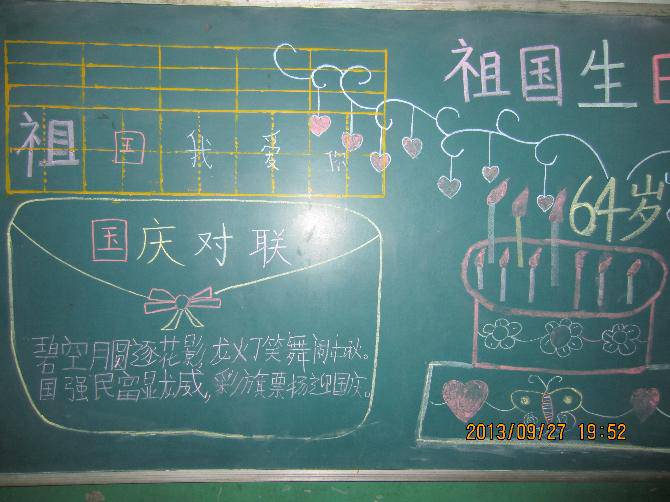 祖国生日
祖国我爱你
64岁
国庆对联
碧空月圆逐花影龙火丁笑舞闹中秋。
国强民富显龙威，彩旗票扬迎国庆。
2013/09/27 19:52